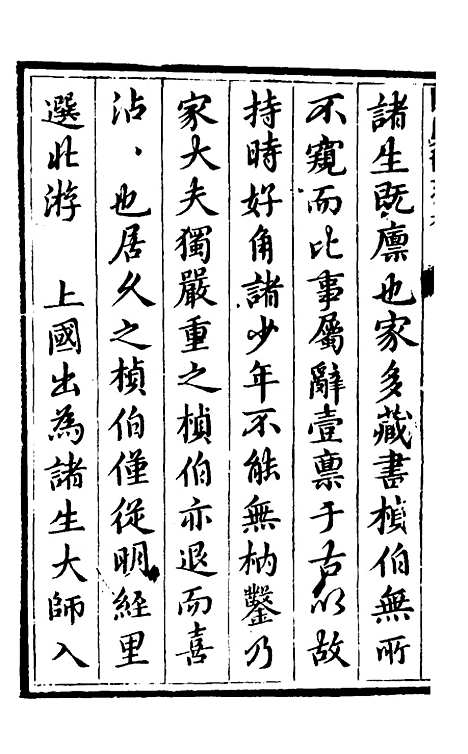 諸生既廩也家多藏書楨伯無所
不窺而比事屬辭壹禀于古以故
持時好角諸少年不能無枘鑿乃
家大夫獨嚴重之楨伯亦退而喜
沾、也居久之楨伯僅從明經里
選北游　上國出為諸生大師入